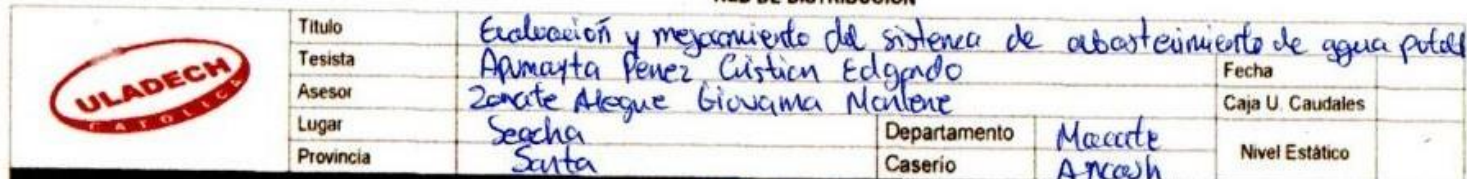 RED DE DISTRIBUCIÓN
ULADECH
CATOLICA
Titulo Evaluación y mejoramiento del sistema de abastecimiento de agua potable
Tesista Apumayta Perez Cristian Edgardo
Fecha
Asesor Zarate Alegre Giovanna Marlene
Caja U. Caudales
Lugar Seacha Departamento Macate
Nivel Estático
Provincia Santa Caserío Ancash